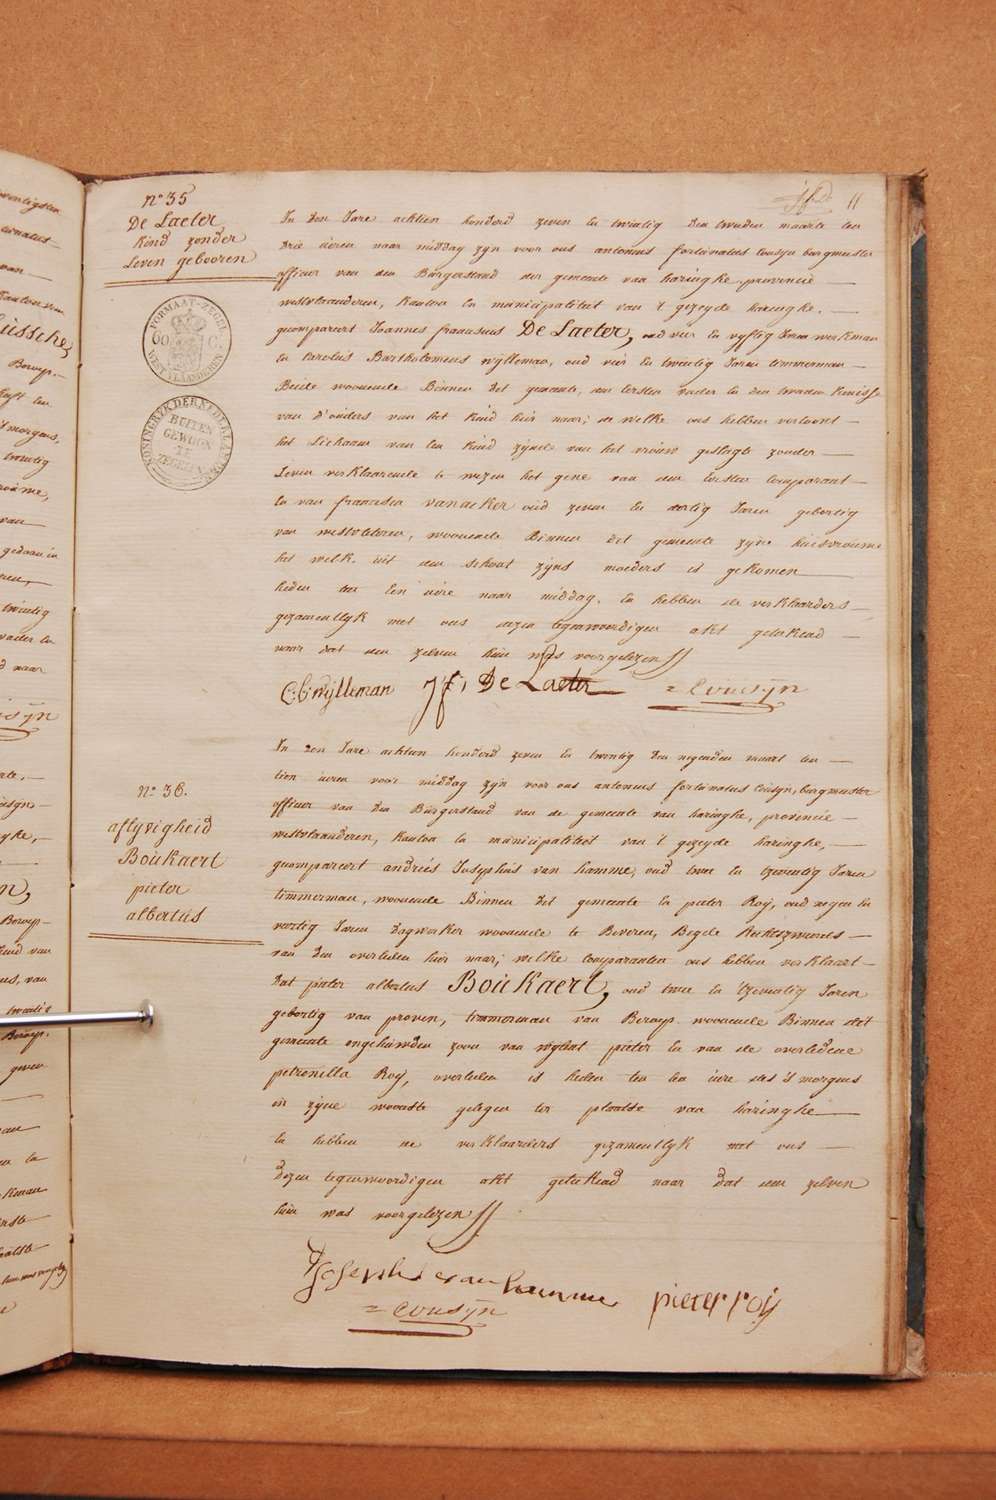 11
n° 35
De Laeter
Kind zonder
Leven gebooren
FORMAAT-ZEGEL
60 C.
WEST VLAANDEREN
KONINGRYK DER NEDERLANDEN
BUITEN
GEWOON
TE
ZEGELEN
In den Jare achtien honderd zeven en twintig den tweeden maarte ten
drie ueren naar middag zyn voor ons antonius fortunatus Cousyn burgmeester
officier van den Burgerstand der gemeente van haringhe provincie
westvlaanderen, Kanton en municipaliteit van 't gezeyde haringhe.
gecompareert Joannes franciscus De Laeter, oud vier en vyftig Jaren werkman
en Carolus Bartholomeus wylleman, oud vier en twintig Jaren timmerman
Beide woonende Binnen det gemeente, den eersten vader en den tweeden Kenisse
van d'ouders van het Kind hier naar; de welke ons hebben vertoont
het Lichaam van een Kind zynde van het vrouw geslagte zonder
Leven verklaarende te wezen het gene van den Eersten Comparant
en van francisca vanacker oud zeven en dertig Jaren gebortig
van westvleteren, woonende Binnen det gemeente zyne huisvrouwe
het welk uit den schoot zyns moeders is gekomen
heden ten Een uere naar middag. En hebben de verklaarders
gezamentlyk met ons dezen tegenwoordigen akt geteekend
naar dat den zelven hun was voorgelezen
C: B: wylleman J: f: De Laeter = Cousyn
n° 36.
aflyvigheid
Boukaert
pieter
albertus
In den Jare achtien honderd zeven en twintig den negenden maart ten
tien ueren voor middag zyn voor ons antonius fortunatus Cousyn, burgmeester
officier van den Burgerstand van de gemeente van haringhe, provincie
westvlaanderen, Kanton en municipaliteit van 't gezeyde haringhe,
gecompareert andries Josephus van hamme, oud twee en tzeventig Jaren
timmerman, woonende Binnen det gemeente en pieter Roy, oud negen en
veertig Jaren dagwerker woonende te Beveren, Begde Rechtszweers
van den overleden hier naar; welke Comparanten ons hebben verklaert
dat pieter albertus Boukaert, oud twee en tzeventig Jaren
gebortig van proven, timmerman van Beroep woonende Binnen det
gemeente ongehuwden zoon van wylent pieter en van de overledene
petronilla Roy, overleden is heden ten een uere des 's morgens
in zyne woonste gelegen ter plaatse van haringhe
En hebben de verklaarders gezamentlyk met ons
dezen tegenwoordigen akt geteekend naar dat den zelven
hun was voorgelezen
Josephus van hamme pieter roy
= Cousyn